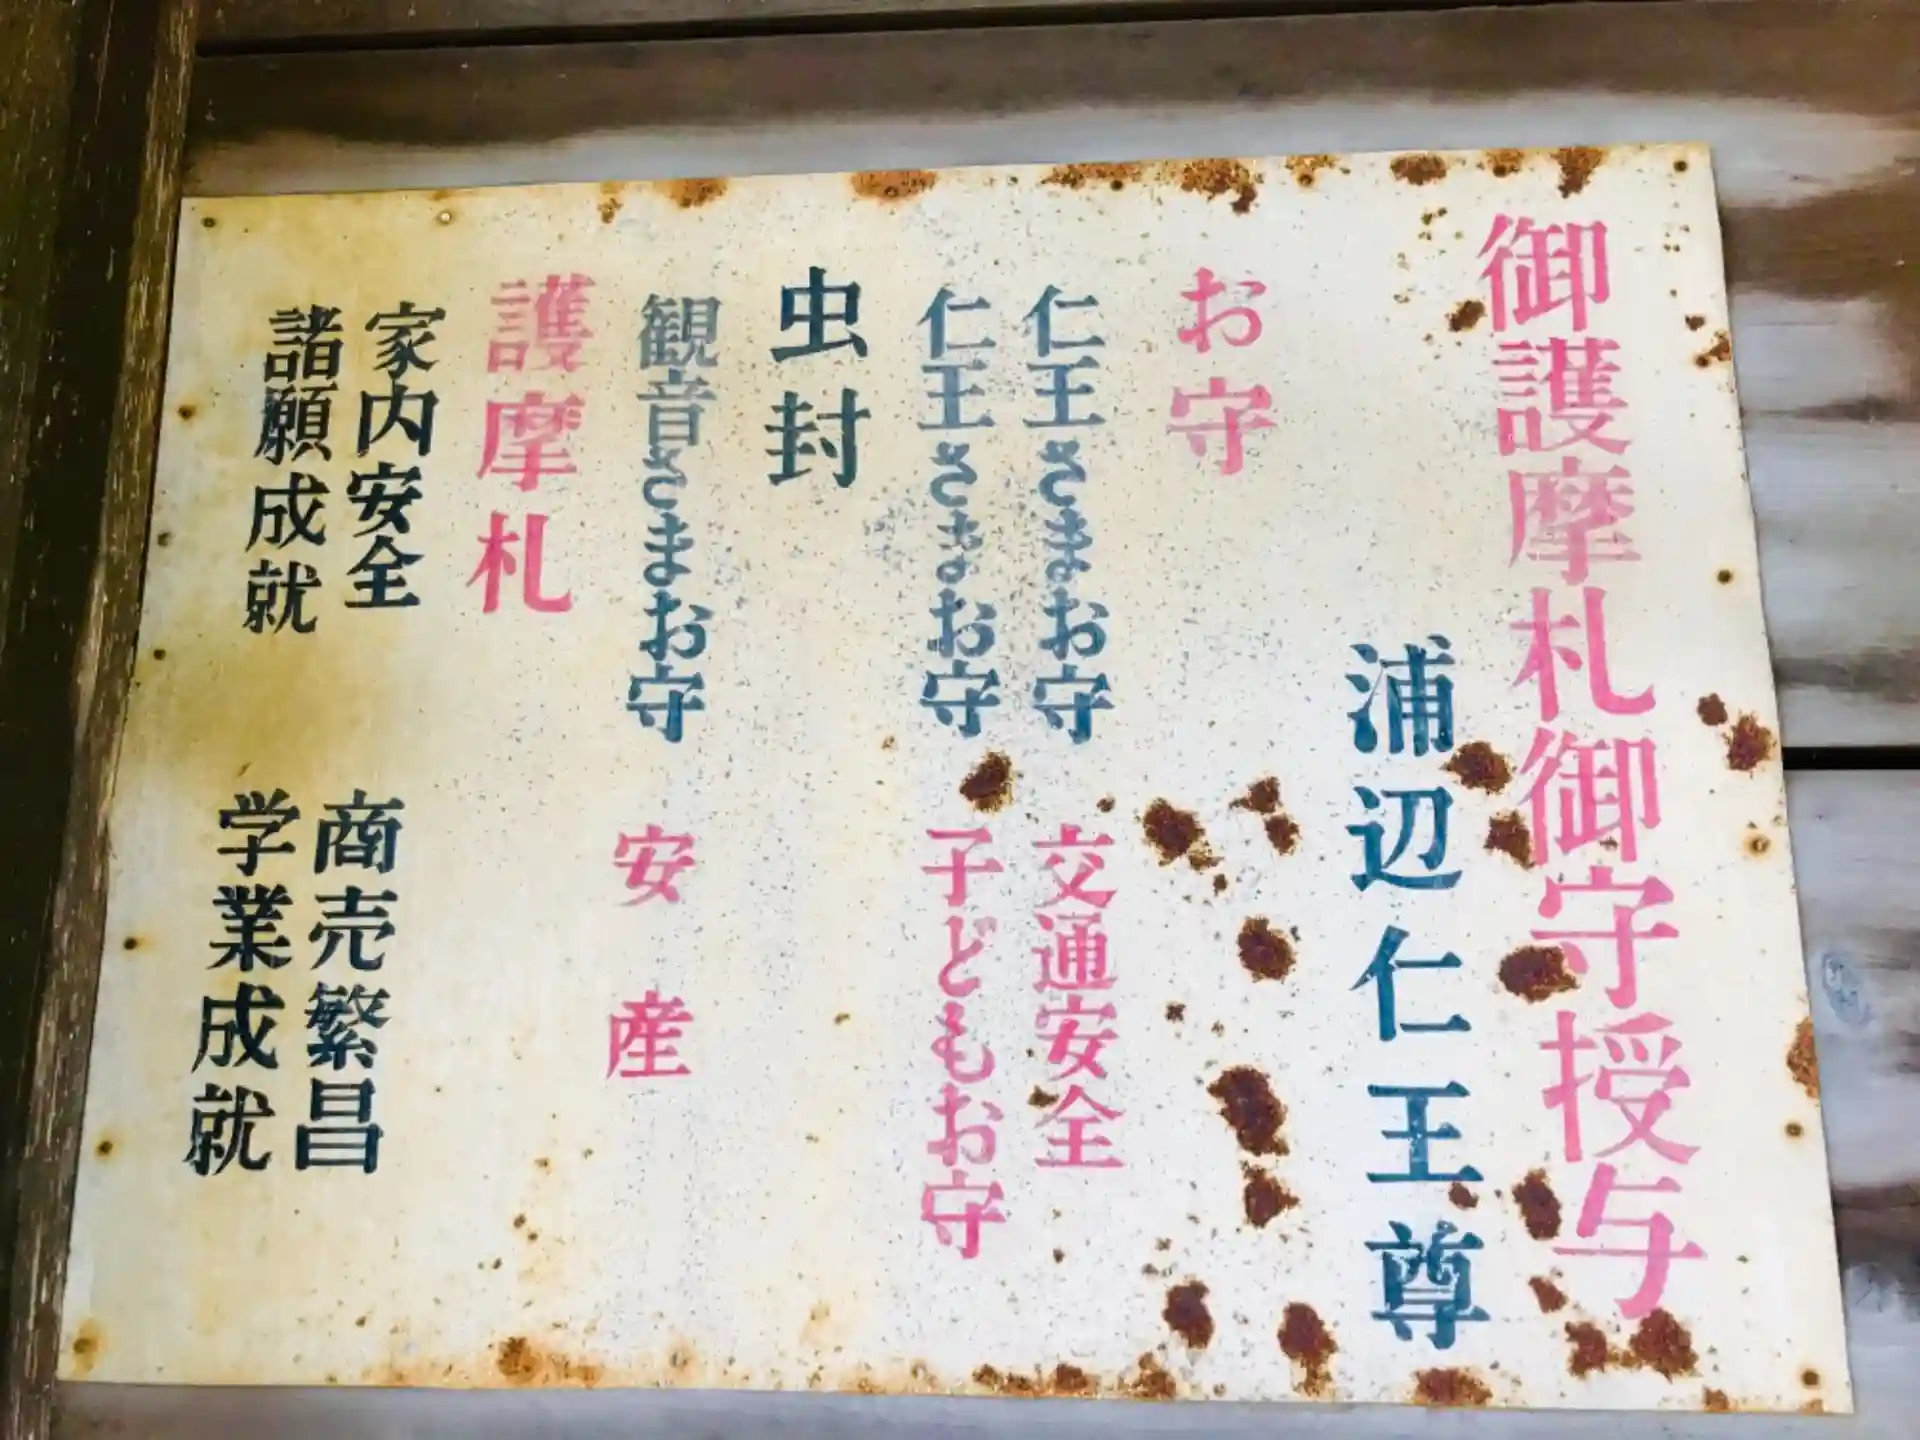 御護摩札御守授与
浦辺仁王尊
お守
仁王さまお守 交通安全
仁王さまお守 子どもお守
虫封
観音さまお守 安産
護摩札
家内安全 商売繁昌
諸願成就 学業成就